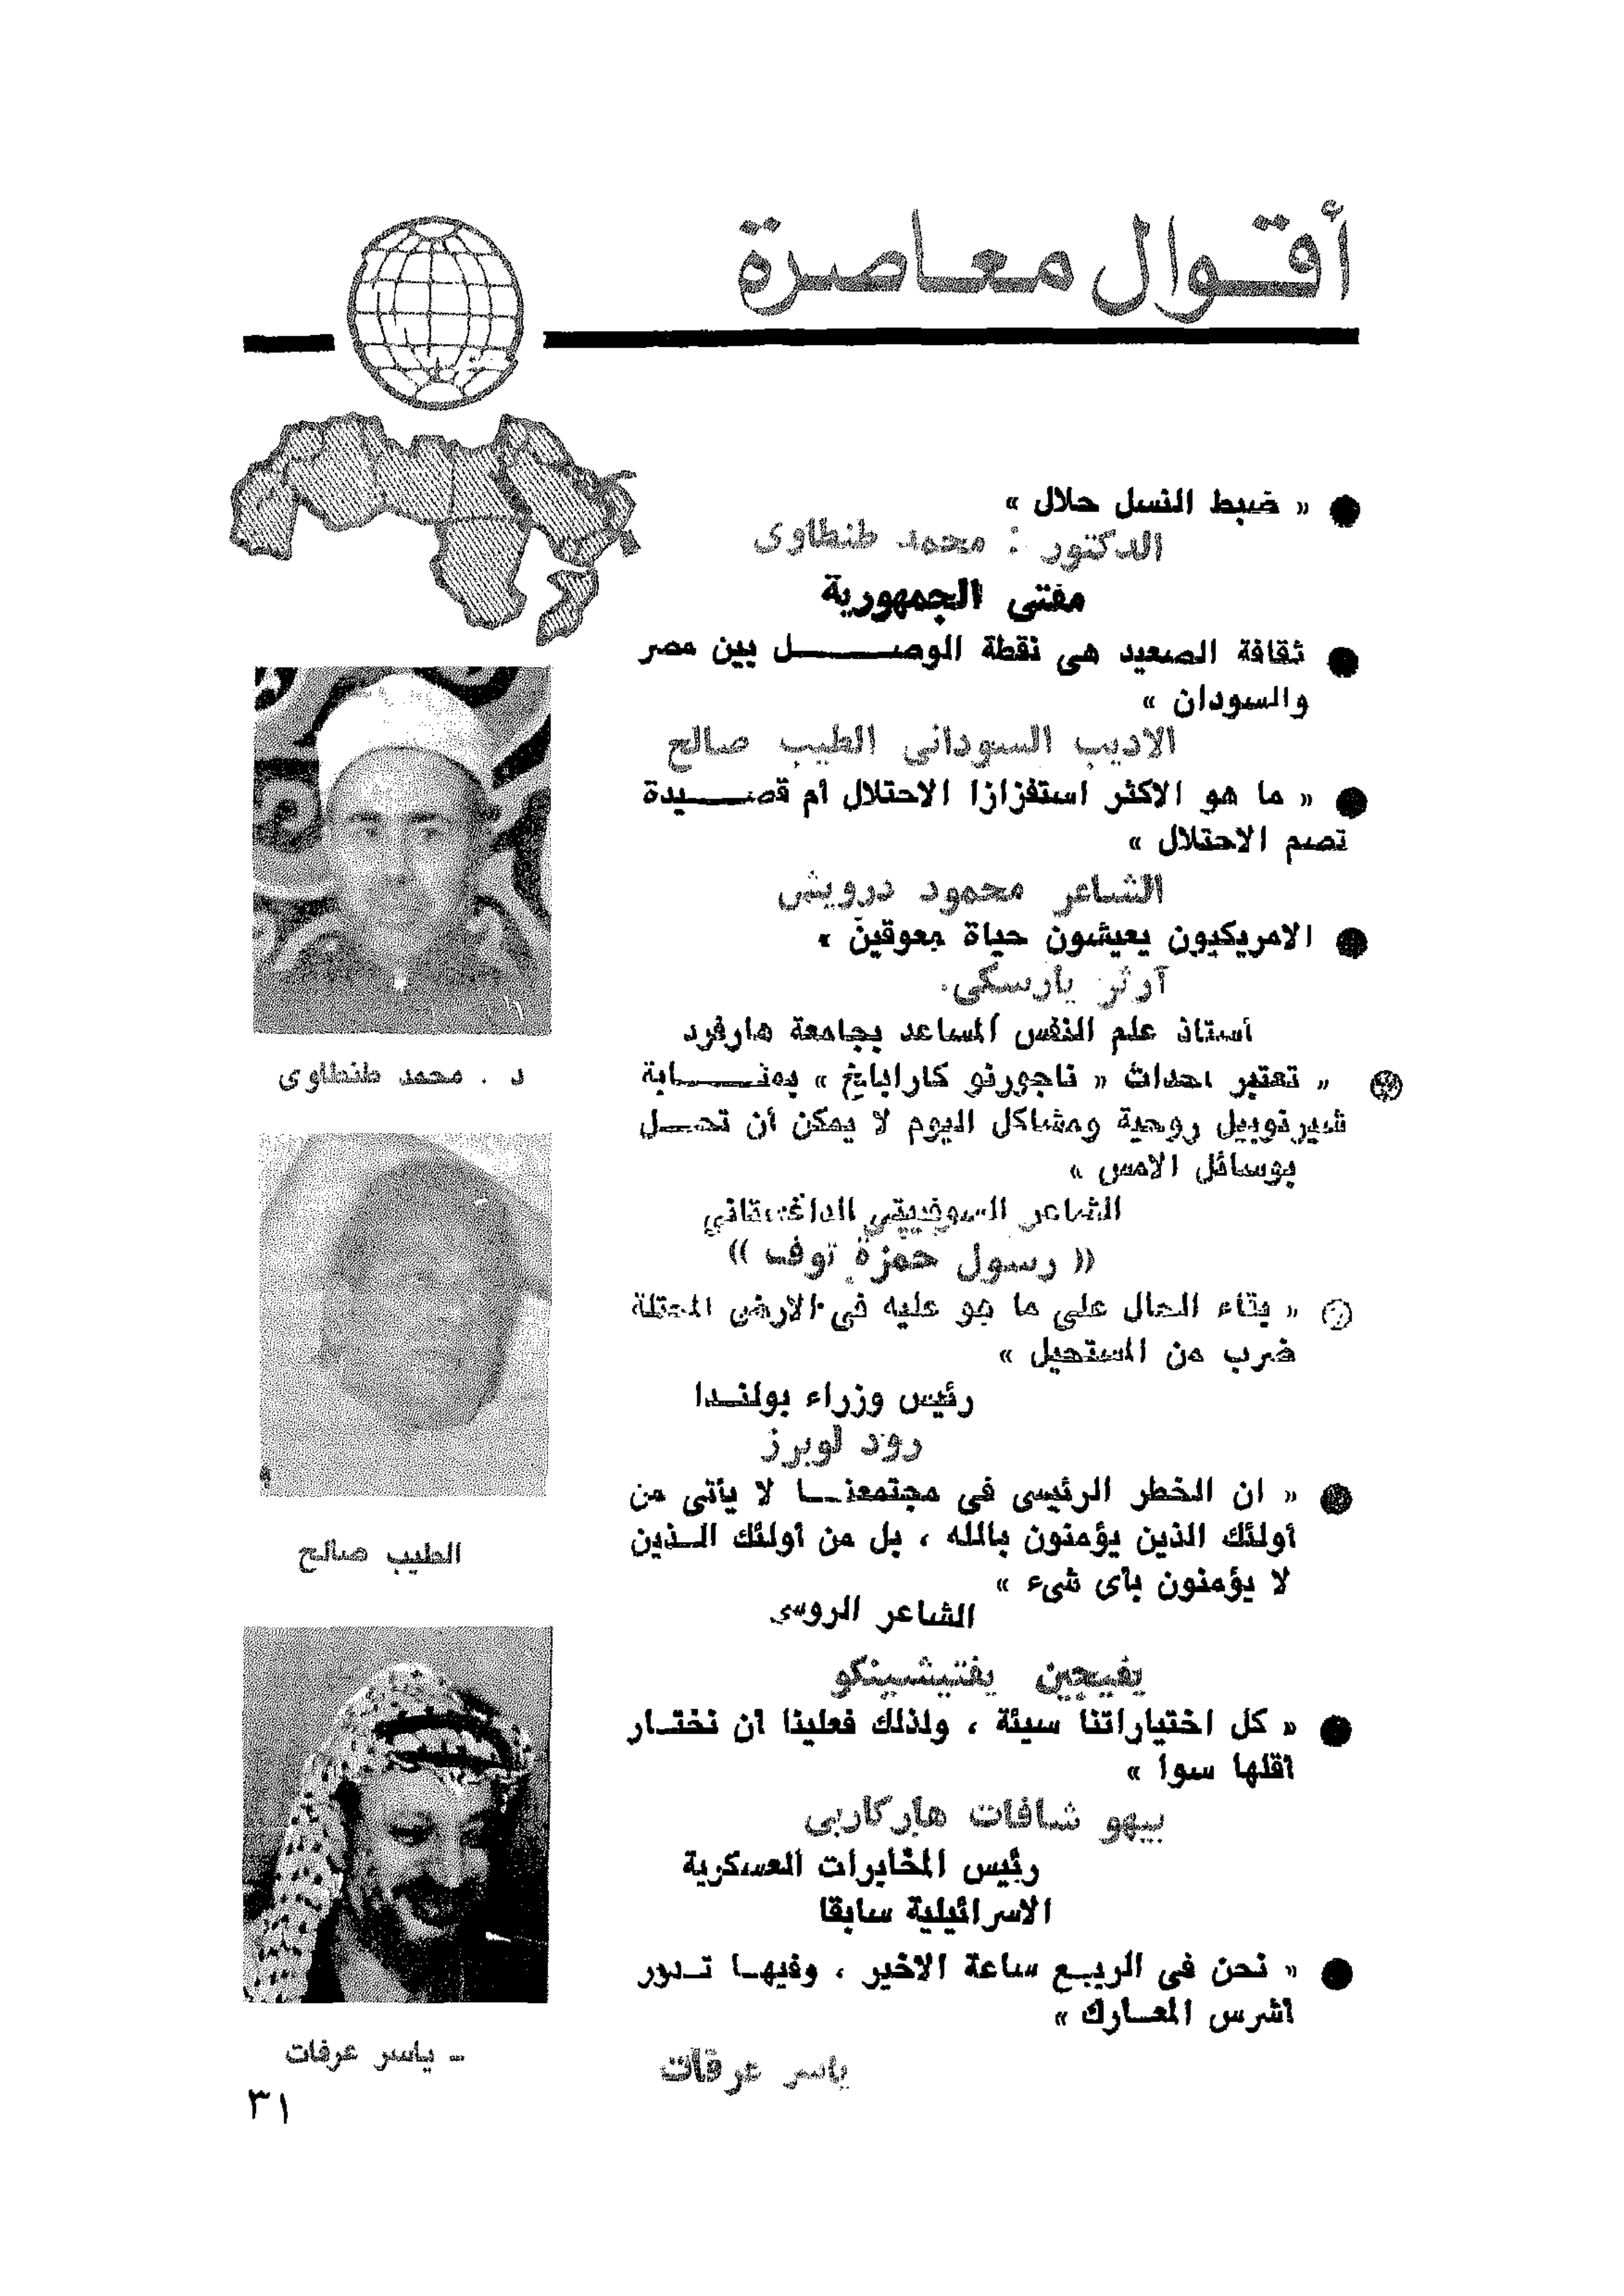 أقوال معاصرة
● « ضبط النسل حلال »
الدكتور : محمد طنطاوى
مفتى الجمهورية
● ثقافة الصعيد هى نقطة الوصل بين مصر
والسودان »
الاديب السودانى الطيب صالح
● « ما هو الاكثر استفزازا الاحتلال أم قصيدة
تصم الاحتلال »
الشاعر محمود درويش
● الامريكيون يعيشون حياة معوقين »
آرثر بارسكى.
أستاذ علم النفس المساعد بجامعة هارفرد
« تعتبر احداث « ناجورنو كاراباغ » بمثابة
شيرنوبيل روحية ومشاكل اليوم لا يمكن أن تحل
بوسائل الامس »
الشاعر السوفييتي الداغستاني
(( رسول حمزة توف ))
« بقاء الحال على ما هو عليه في الارض المحتلة
ضرب من المستحيل »
رئيس وزراء بولندا
رود لوبرز
● « ان الخطر الرئيسى فى مجتمعنا لا يأتى من
أولئك الذين يؤمنون بالله ، بل من أولئك الذين
لا يؤمنون بأى شىء »
الشاعر الروسى
يفيجين يفتيشينكو
● « كل اختياراتنا سيئة ، ولذلك فعلينا أن نختار
أقلها سوا »
بيهو شافات هاركابى
رئيس المخابرات العسكرية
الاسرائيلية سابقا
● « نحن فى الربع ساعة الاخير ، وفيها تدور
أشرس المعارك »
ياسر عرفات
د . محمد طنطاوى
الطيب صالح
ـ ياسر عرفات
٣١